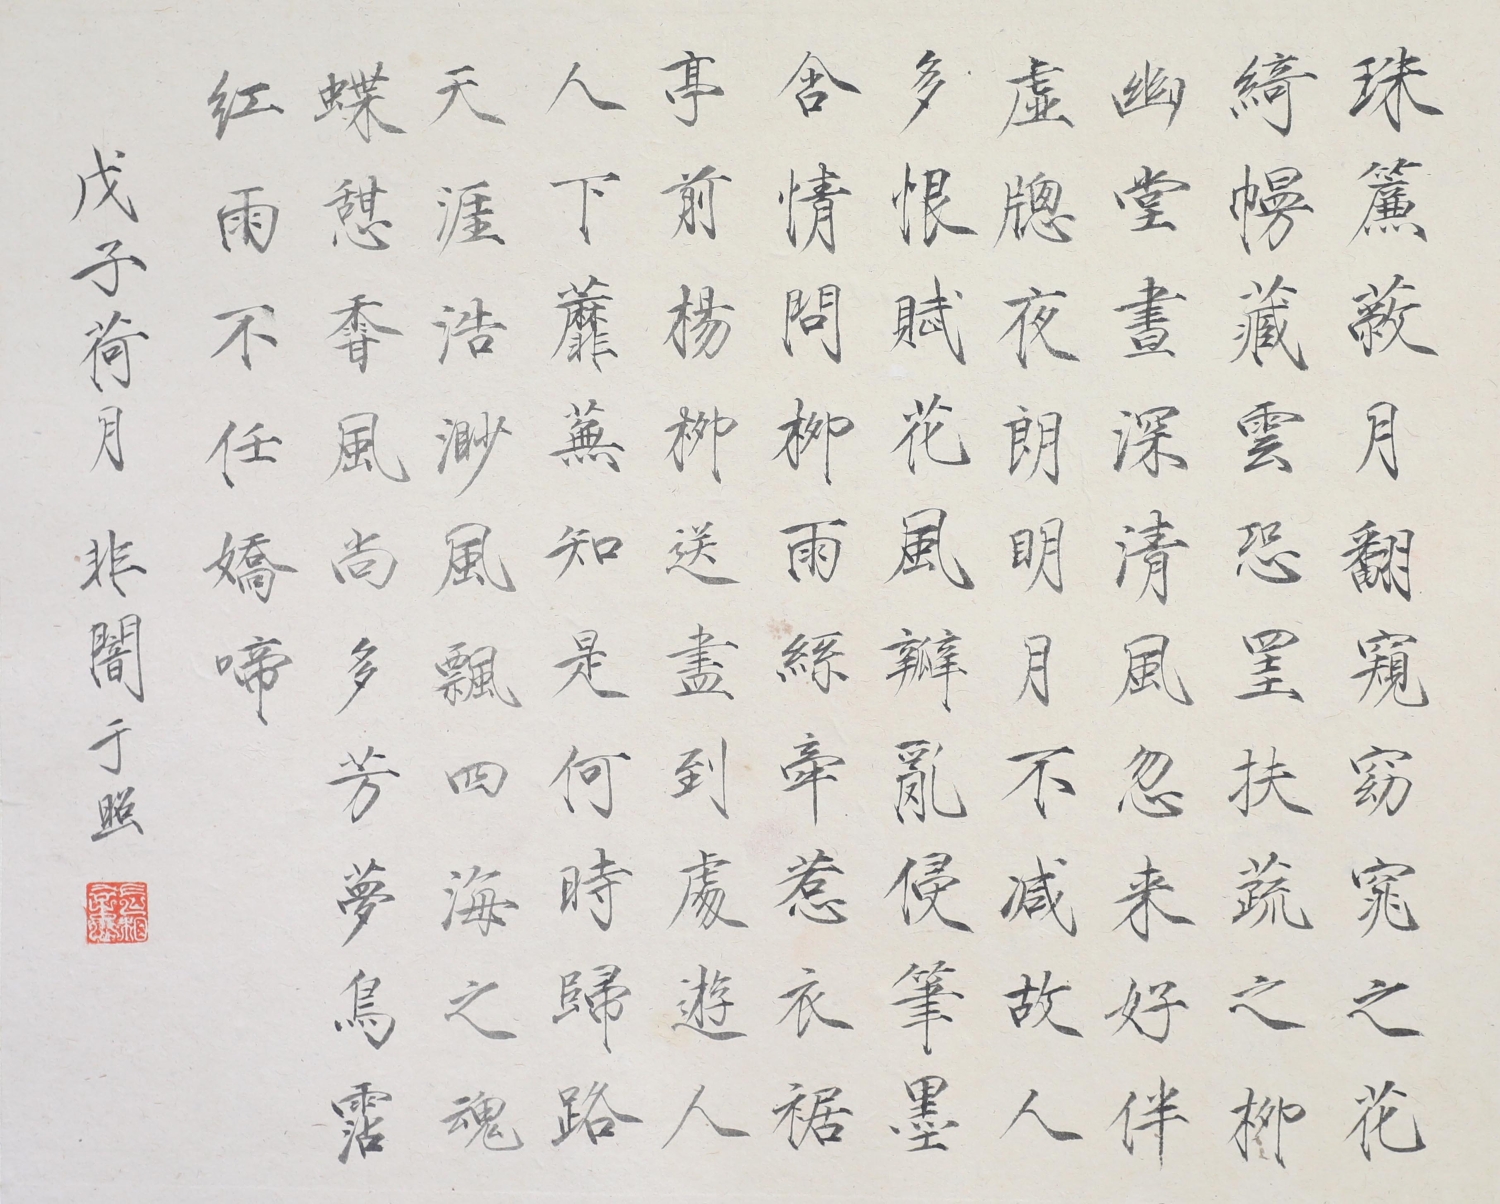 珠簾蔽月翻窺窈窕之花
綺幌藏雲恐罣扶蔬之柳
幽堂晝深清風忽来好伴
虛牕夜朗明月不减故人
多恨賦花風瓣亂侵筆墨
含情問柳雨絲牽惹衣裾
亭前楊柳送盡到處遊人
人下蘼蕪知是何時歸路
天涯浩渺風飄四海之魂
蝶憇香風尚多芳夢鳥霑
紅雨不任嬌啼
戊子荷月 非闇于照